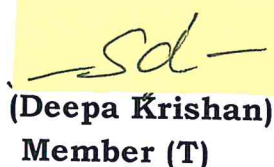 -sd-
(Deepa Krishan)
Member (T)